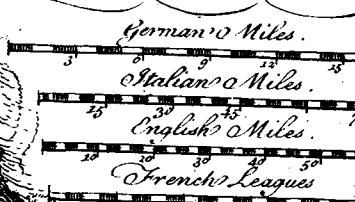 German Miles.
3 6 9 12 15
Italian Miles.
15 30 45
English Miles.
10 20 30 40 50
French Leagues